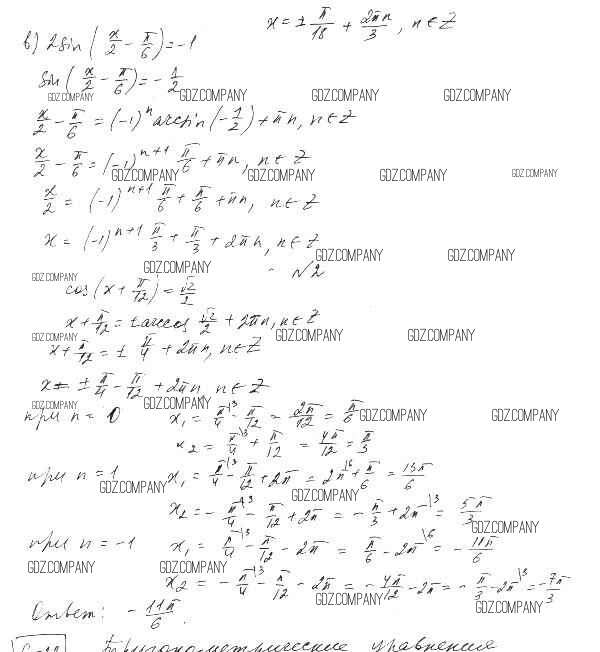 x = ± π/18 + 2πn/3, n ∈ Z
в) 2sin(x/2 - π/6) = -1
sin(x/2 - π/6) = -1/2
GDZ.COMPANY GDZ.COMPANY GDZ.COMPANY GDZ.COMPANY
x/2 - π/6 = (-1)^n arcsin(-1/2) + πn, n ∈ Z
x/2 - π/6 = (-1)^{n+1} π/6 + πn, n ∈ Z
GDZ.COMPANY GDZ.COMPANY GDZ.COMPANY GDZ.COMPANY
x/2 = (-1)^{n+1} π/6 + π/6 + πn, n ∈ Z
x = (-1)^{n+1} π/3 + π/3 + 2πn, n ∈ Z
GDZ.COMPANY GDZ.COMPANY
GDZ.COMPANY GDZ.COMPANY
№2
cos(x + π/12) = √2/2
x + π/12 = ± arccos √2/2 + 2πn, n ∈ Z
GDZ.COMPANY GDZ.COMPANY GDZ.COMPANY
x + π/12 = ± π/4 + 2πn, n ∈ Z
x = ± π/4 - π/12 + 2πn, n ∈ Z
GDZ.COMPANY GDZ.COMPANY GDZ.COMPANY GDZ.COMPANY
при n = 0 x₁ = π/4\3 - π/12 = 2π/12 = π/6
x₂ = π/4\3 + π/12 = 4π/12 = π/3
при n = 1 x₁ = π/4\3 - π/12 + 2π = 2π\6 + π/6 = 13π/6
GDZ.COMPANY GDZ.COMPANY
x₂ = - π/4\3 - π/12 + 2π = - π/3 + 2π\3 = 5π/3
GDZ.COMPANY
при n = -1 x₁ = π/4\3 - π/12 - 2π = π/6 - 2π\6 = - 11π/6
GDZ.COMPANY GDZ.COMPANY
x₂ = - π/4\3 - π/12 - 2π = - 4π/12 - 2π = - π/3 - 2π\3 = -7π/3
GDZ.COMPANY GDZ.COMPANY
Ответ: - 11π/6.
Тригонометрические уравнения